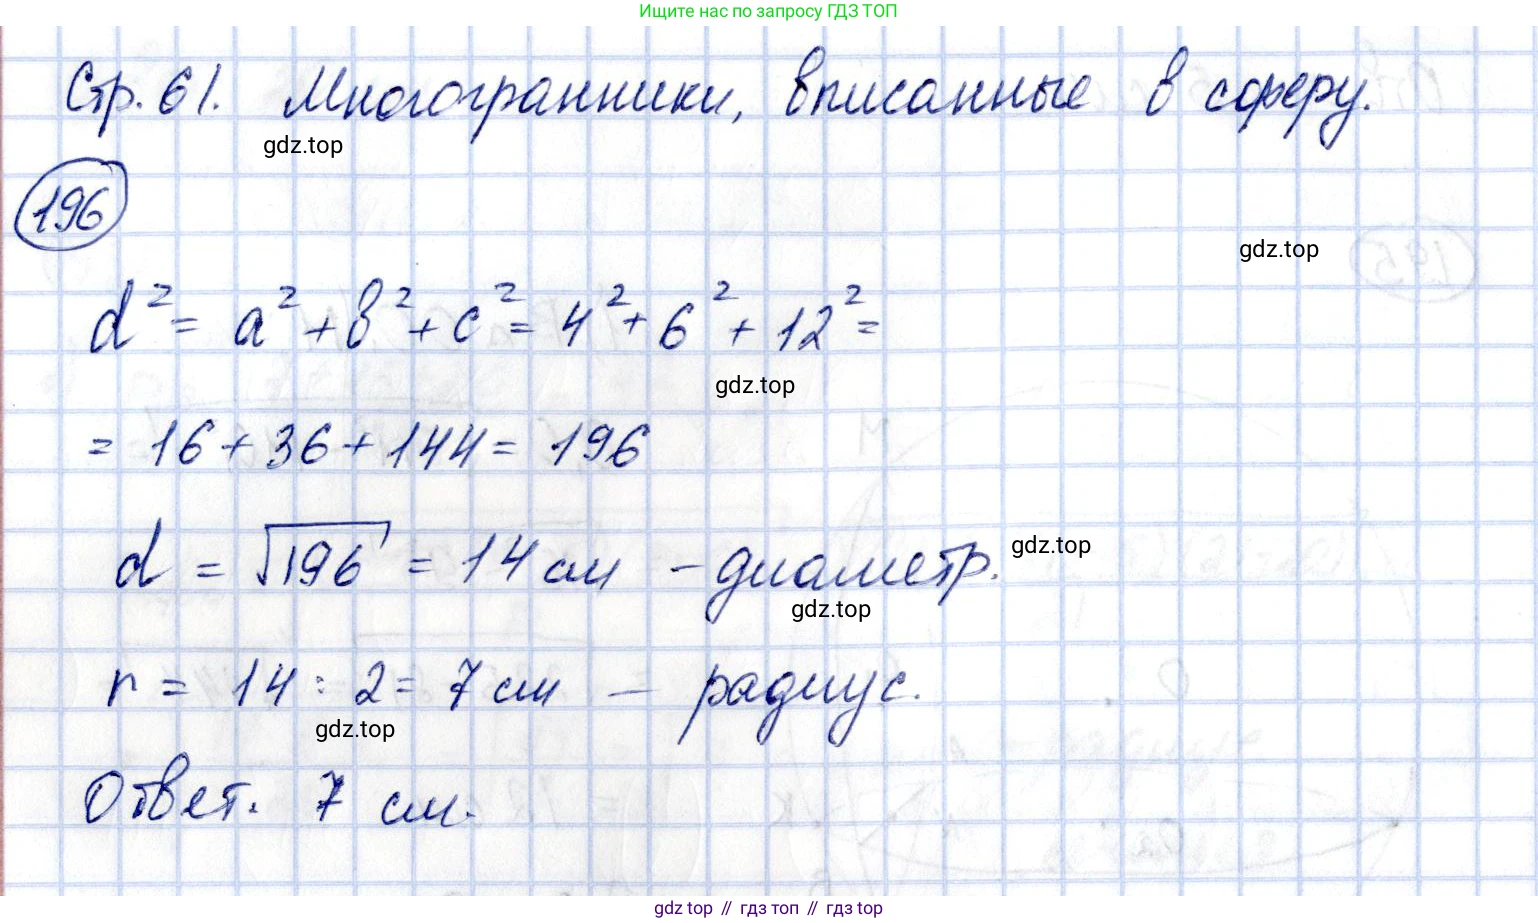 Ищите нас по запросу ГДЗ ТОП
Стр. 61. Многогранники, вписанные в сферу.
gdz.top
196
gdz.top
d² = a² + b² + c² = 4² + 6² + 12² =
gdz.top
= 16 + 36 + 144 = 196
d = √196 = 14 см - диаметр.
gdz.top
gdz.top
r = 14 : 2 = 7 см — радиус.
gdz.top
Ответ. 7 см.
gdz top // гдз топ // gdz top